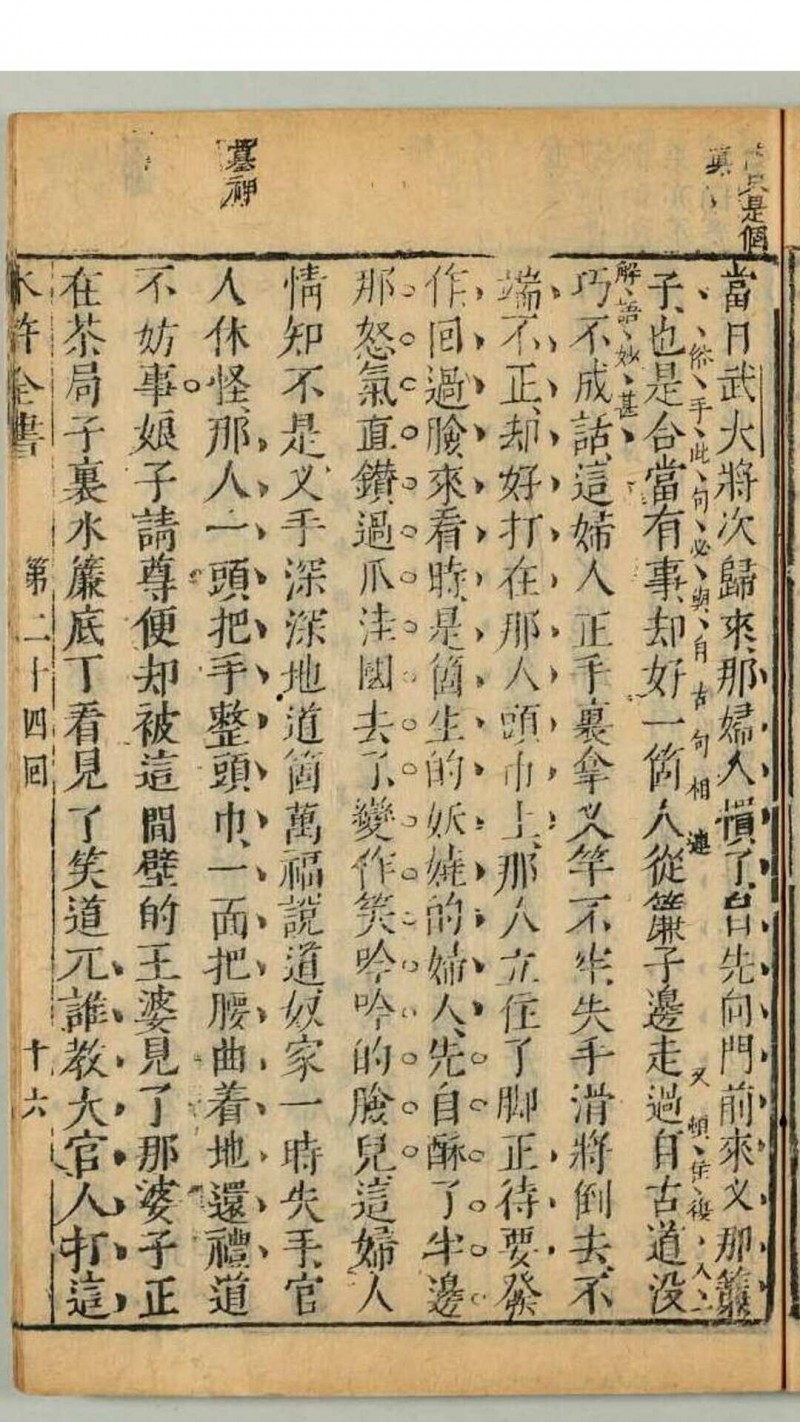 是個
真
當日武大將次歸來那婦人慣了自先向門前來叉那簾
子也是合當有事却好一箇人從簾子邊走過自古道沒
巧不成話這婦人正手裏拿叉竿不牢失手滑將倒去不
端不正却好打在那人頭巾上那人立住了脚正待要發
作回過臉來看時是箇生的妖嬈的婦人先自酥了半邊
那怒氣直鑽過爪洼國去了變作笑吟吟的臉兒這婦人
情知不是叉手深深地道箇萬福說道奴家一時失手官
人休怪那人一頭把手整頭巾一面把腰曲着地還禮道
不妨事娘子請尊便却被這間壁的王婆見了那婆子正
在茶局子裏水簾底下看見了笑道兀誰教大官人打這
依手此句必與自古句相連
解語妙甚
水滸全書
第二十四回
十六